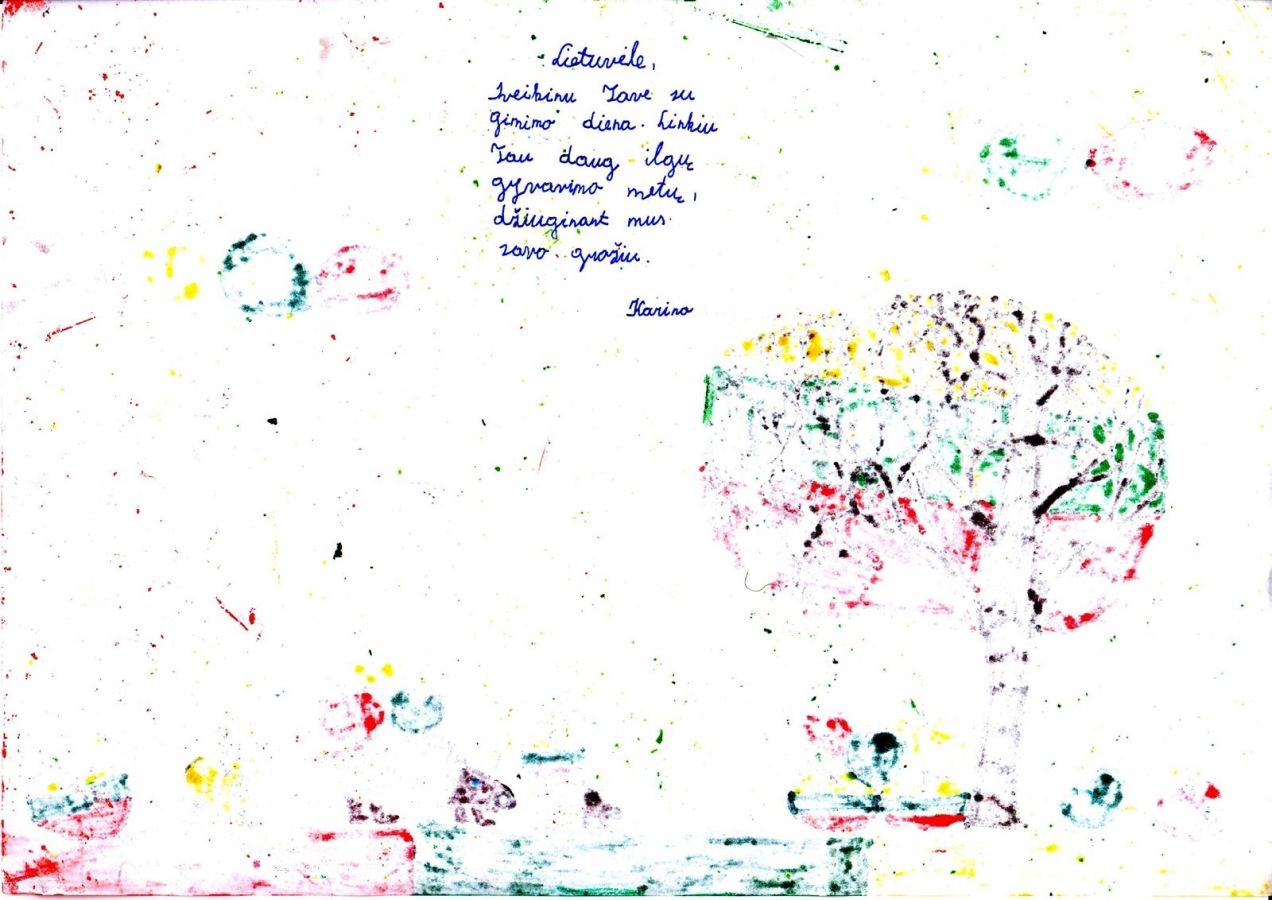 Lietuvėle,
sveikinu Tave su
gimimo diena. Linkiu
Tau daug ilgų
gyvavimo metų,
džiuginant mus
savo grožiu.
Karina